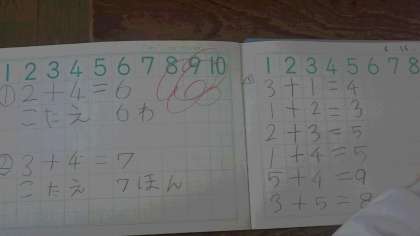 1 2 3 4 5 6 7 8 9 10
① 2+4=6
こたえ 6わ
② 3+4=7
こたえ 7ほん
1 2 3 4 5 6 7 8
3+1=4
1+2=3
2+3=5
1+4=5
5+4=9
3+5=8